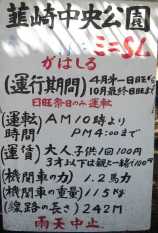 韮崎中央公園
ミニSL
がはしる
(運行期間) 4月第一日曜から
10月最終日曜まで
日曜祭日のみ運転
(運転) AM10時より
時間 PM4:00まで
(運賃) 大人子供1回100円
3才以下は親と一緒100円
(機関車の力) 1.2馬力
(機関車の重量) 115kg
(線路の長さ) 242M
雨天中止